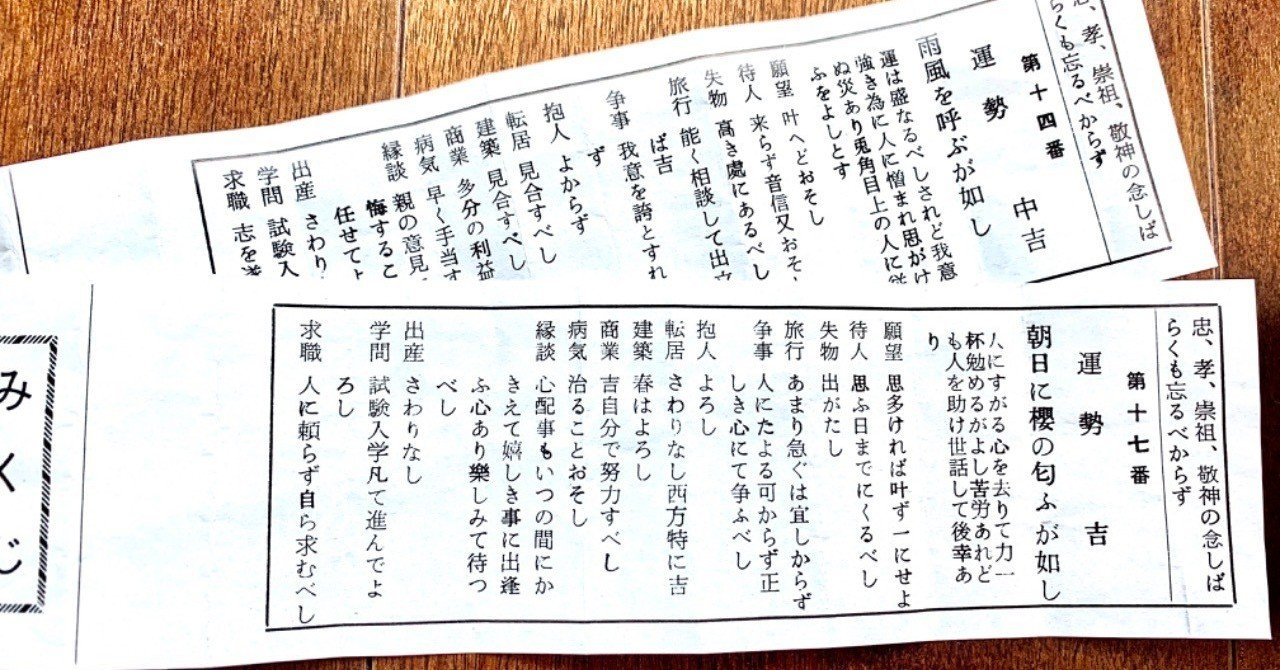 忠、孝、崇祖、敬神の念しば
らくも忘るべからず
第十四番
運勢 中吉
雨風を呼ぶが如し
運は盛なるべしされど我意
強き為に人に憎まれ思がけ
ぬ災あり兎角目上の人に従
ふをよしとす
願望 叶へどおそし
待人 来らず音信又おそ
失物 高き處にあるべし
旅行 能く相談して出立
ば吉
争事 我意を誇とすれ
ず
抱人 よからず
転居 見合すべし
建築 見合すべし
商業 多分の利益
病気 早く手当す
縁談 親の意見
悔するこ
任せてよ
出産 さわり
学問 試験入
求職 志を
忠、孝、崇祖、敬神の念しば
らくも忘るべからず
第十七番
運勢 吉
朝日に櫻の匂ふが如し
人にすがる心を去りて力一
杯勉めるがよし苦労あれど
も人を助け世話して後幸あ
り
願望 思多ければ叶ず一にせよ
待人 思ふ日までにくるべし
失物 出がたし
旅行 あまり急ぐは宜しからず
争事 人にたよる可からず正
しき心にて争ふべし
抱人 よろし
転居 さわりなし西方特に吉
建築 春はよろし
商業 吉自分で努力すべし
病気 治ることおそし
縁談 心配事もいつの間にか
きえて嬉しき事に出逢
ふ心あり樂しみて待つ
べし
出産 さわりなし
学問 試験入学凡て進んでよ
ろし
求職 人に頼らず自ら求むべし
みくじ